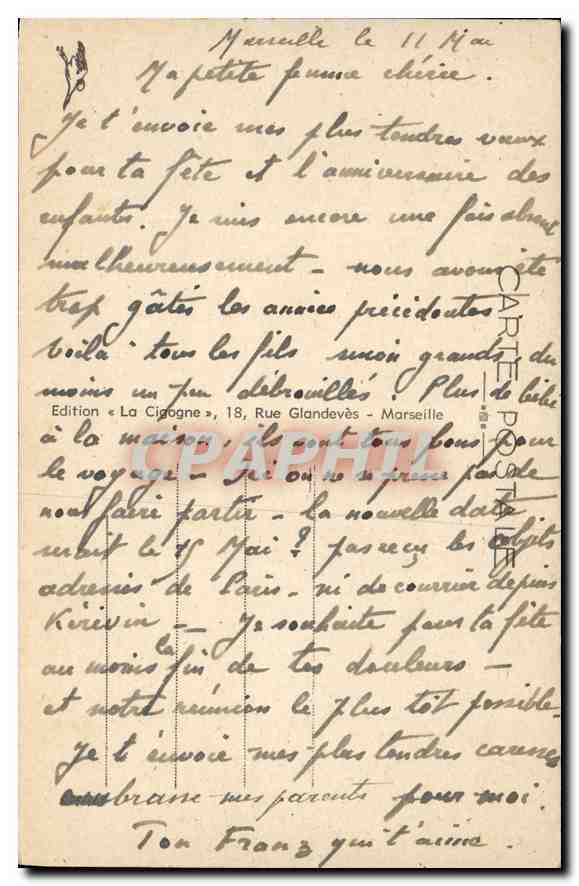 Marseille le 11 Mai
Ma petite femme chérie.
Je t'envoie mes plus tendres vœux
pour ta fête et l'anniversaire des
enfants. Je suis encore une fois absent
malheureusement - nous avons été
trop gâtés les années précédentes
voilà tous les fils sinon grands, du
moins un peu débrouillés. Plus de bébé
Edition « La Cigogne », 18, Rue Glandevès - Marseille
à la maison, ils sont tous bons pour
le voyage - Ici on ne se presse pas de
nous faire partir - la nouvelle date
serait le 15 Mai ? pas reçu les objets
adressés de Paris - ni de courrier depuis
Kérévin - Je souhaite pour ta fête
au moins la fin de tes douleurs -
et notre réunion le plus tôt possible.
Je t'envoie mes plus tendres caresses
embrasse mes parents pour moi.
Ton Franz qui t'aime.
CARTE POSTALE
CPAPHIL